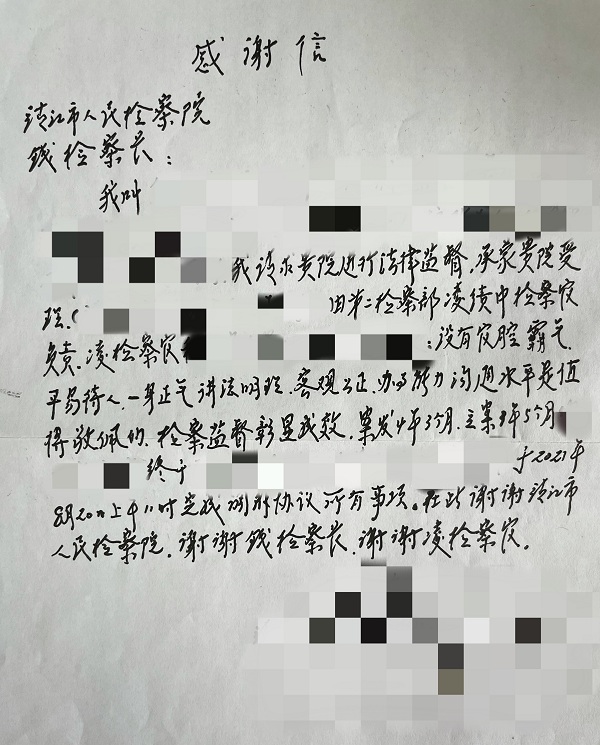 感谢信
靖江市人民检察院
钱检察长：
我叫
我请求贵院进行法律监督，承蒙贵院受
理.( 由第二检察部凌绩中检察官
负责.凌检察官 :没有官腔霸气.
平易待人.一身正气讲法明理.客观公正.办事能力沟通水平是值
得敬佩的.检察监督彰显成效.案发4年3个月.立案3年5个月
终于 于2021年
8月20日上午11时完成调解协议所有事项。在此谢谢靖江市
人民检察院.谢谢钱检察长.谢谢凌检察官。